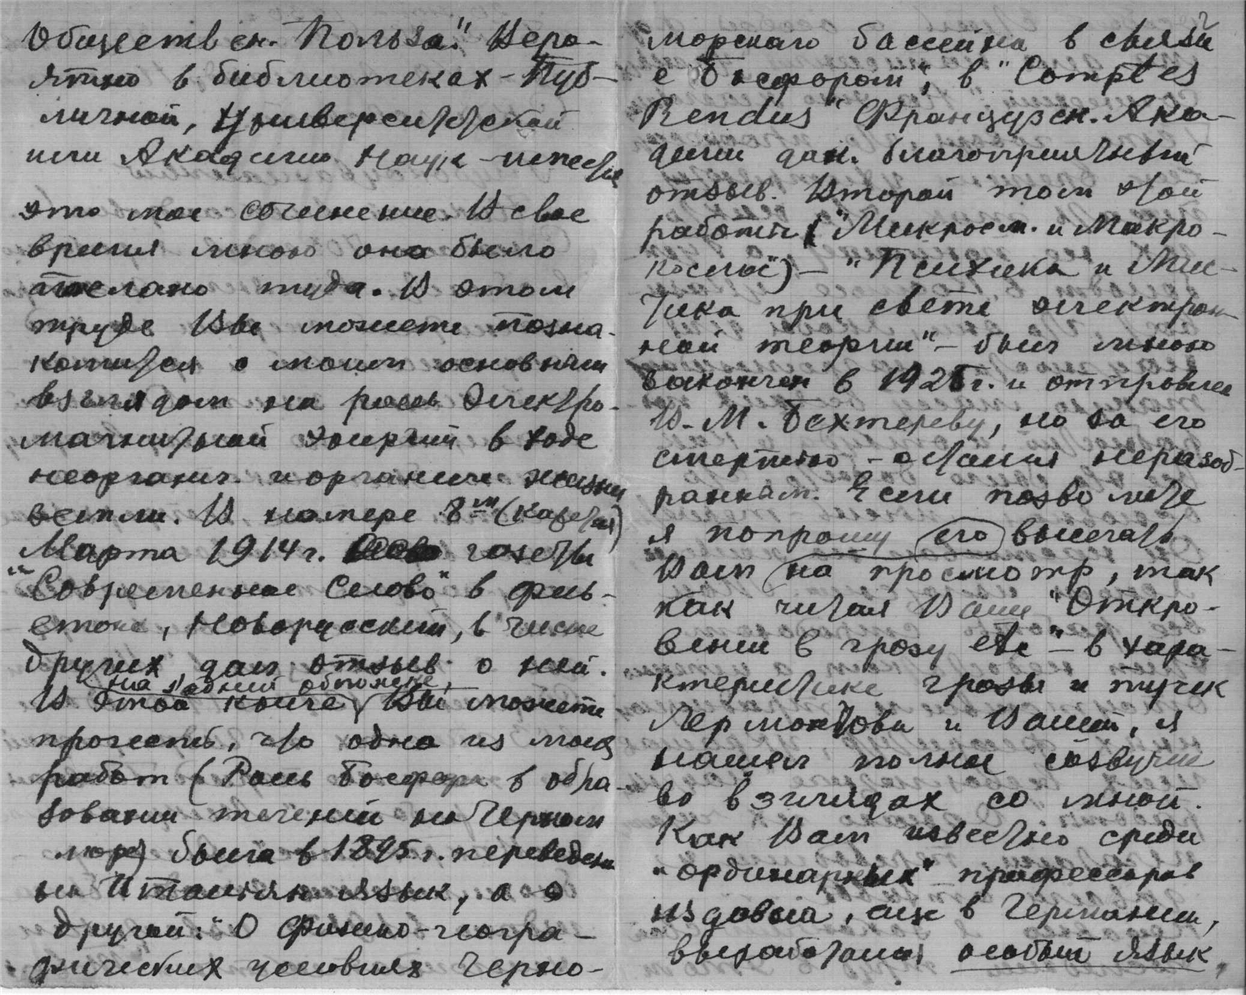 Обществен. Польза." Веро-
ятно в библиотеках - Пуб-
личной, Университетской
или Академии Наук - имеется
это мое сочинение. В свое
время мною оно было
послано туда. В этом
труде Вы можете позна-
комиться с моим основным
взглядом на роль Электро-
магнитной энергии в ходе
неорганич. и органич. жизни
земли. В номере 8ᵐ
Марта 1914 г. газеты
"Современное Слово" в фель-
етоне, Новорусский, в числе
других дал отзыв о ней.
на задней обложке,
В этой книге Вы можете
прочесть, что одна из моих
работ (Роль Босфора в обра-
зовании течений на Черном
море) была в 1895 г. переведена
на Итальян. язык, а о
другой: О физико-геогра-
фических условиях Черно-
2
морского бассейна в связи
с Босфором", в "Comptes
Rendus" Французск. Ака-
демии дан. благоприятный
отзыв. Второй том этой
работы ("Микросм. и Макро-
космос") - "Психика и Мис-
тика при свете электрон-
ной теории" - был мною
закончен в 1925 г. и отправлен
В. М. Бехтереву, но за его
смертью - остался неразоб-
ранным. Если позволите
я попрошу его выслать
Вам на просмотр, так
как читая Ваши "Откро-
вении в грозу etc" - в хара-
ктеристике грозы и тучек
Лермонтова и Вашей, я
нашел полное созвучие
во взглядах со мной.
Как Вам известно среди
"ординарных" профессоров
издавна, еще в Германии,
выработался особый язык